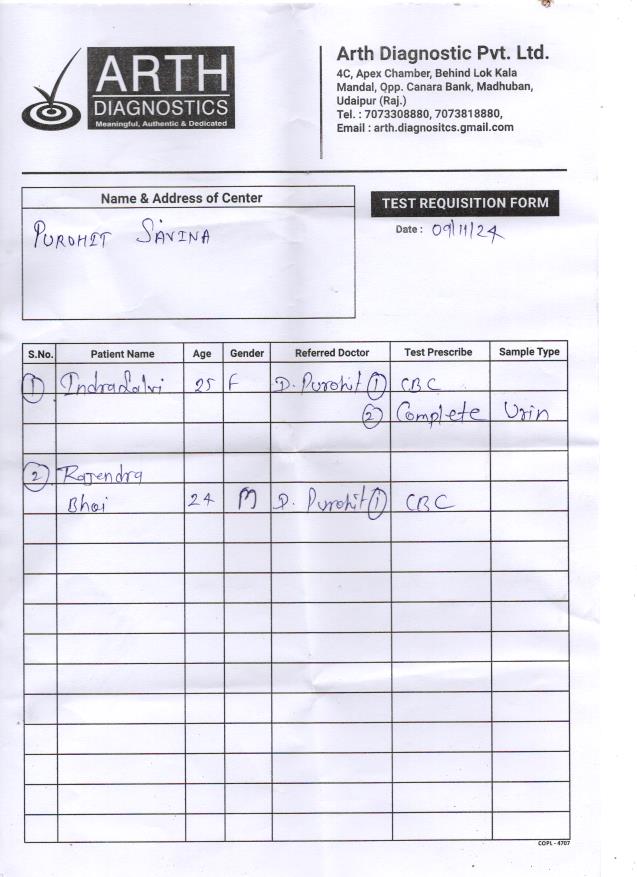 ARTH
DIAGNOSTICS
Meaningful, Authentic & Dedicated
Arth Diagnostic Pvt. Ltd.
4C, Apex Chamber, Behind Lok Kala
Mandal, Opp. Canara Bank, Madhuban,
Udaipur (Raj.)
Tel. : 7073308880, 7073818880,
Email : arth.diagnositcs.gmail.com
Name & Address of Center
PUROHIT SAVINA
TEST REQUISITION FORM
Date : 09/11/24
S.No. Patient Name Age Gender Referred Doctor Test Prescribe Sample Type
1 25 F D. Purohit 1 CBC
2 Complete Urin
2 Rajendra
Bhai 24 M D. Purohit 1 CBC
COPL - 4707